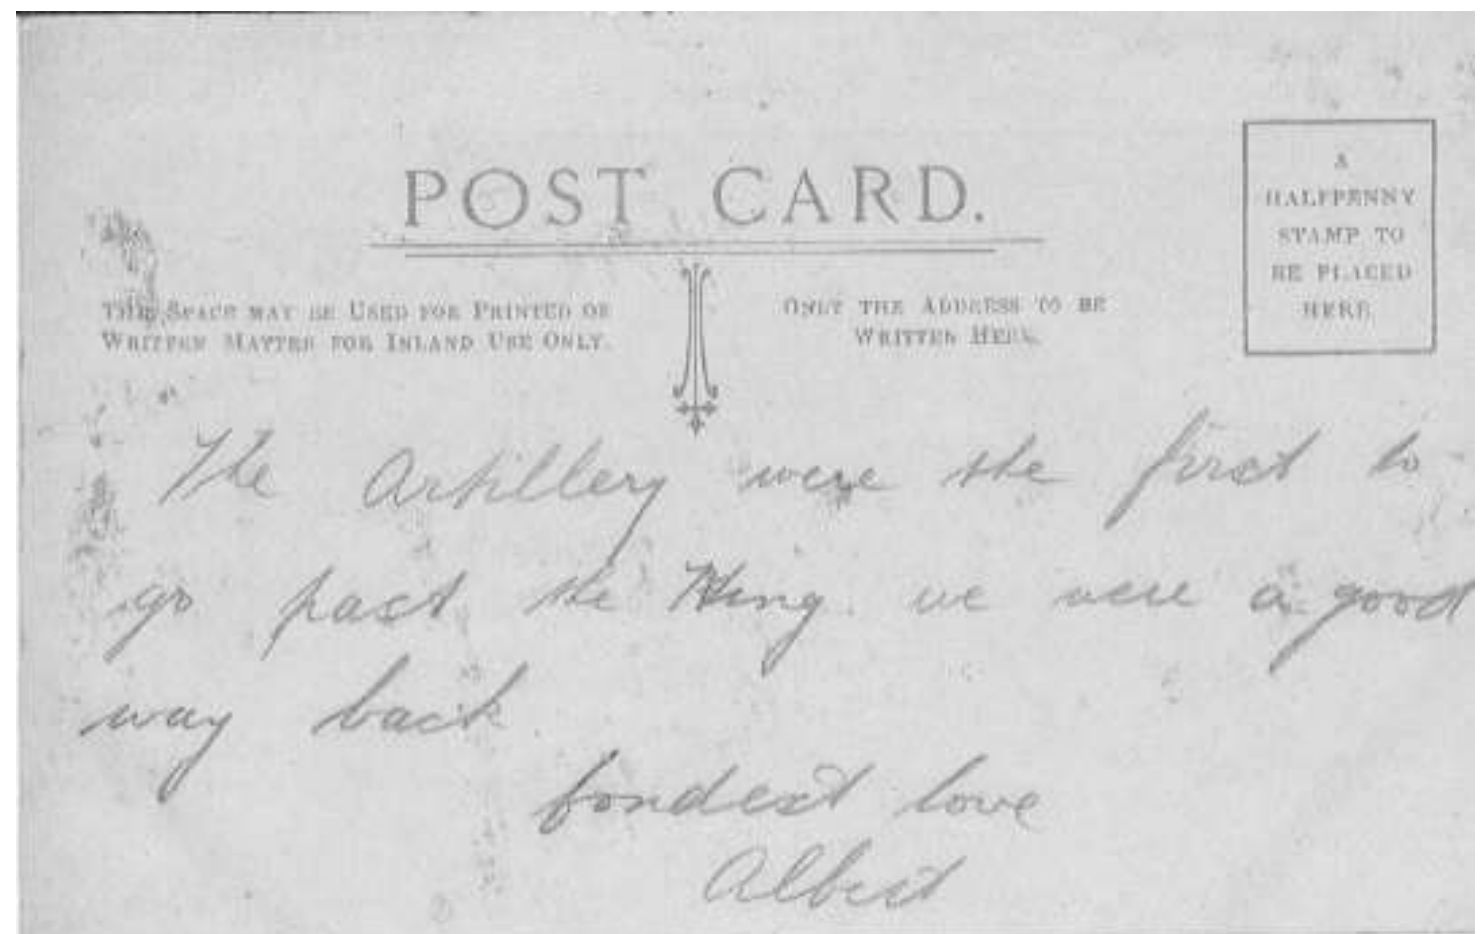 POST CARD.
A
HALFPENNY
STAMP TO
BE PLACED
HERE.
THIS SPACE MAY BE USED FOR PRINTED OR
WRITTEN MATTER FOR INLAND USE ONLY.
ONLY THE ADDRESS TO BE
WRITTEN HERE.
The Artillery were the first to
go past the King. we were a good
way back
fondest love
Albert